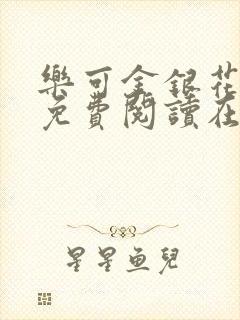 樂可金銀花
免費閱讀在
星星魚兒